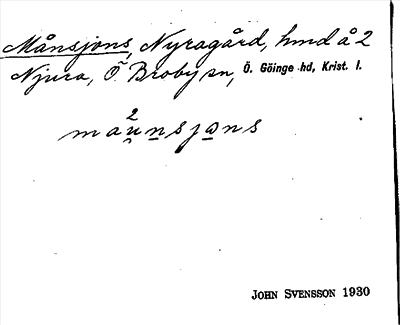 Månsjöns, Nyragård, hmd å 2
Njura, Ö. Broby sn, Ö. Göinge hd, Krist. l.
2
maunsjøns
JOHN SVENSSON 1930